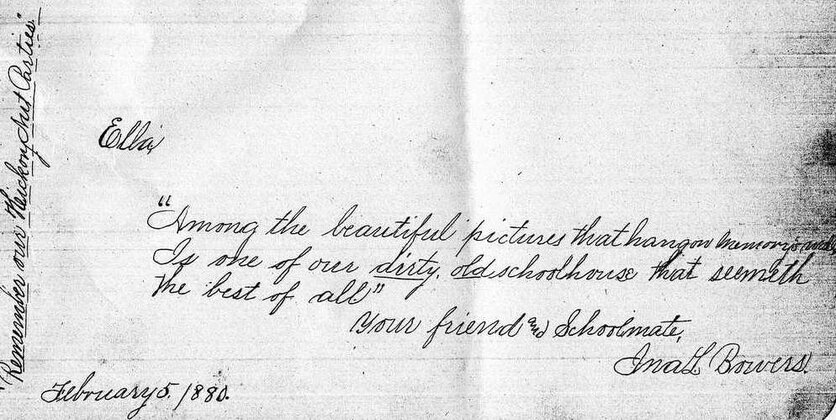 "Remember our Hickory Nut Parties."
Ella,
"Among the beautiful pictures that hang on Memory's wall,
Is one of our dirty, old schoolhouse that seemeth
the best of all"
Your friend and Schoolmate,
Ina L Bowers.
February 5. 1880.